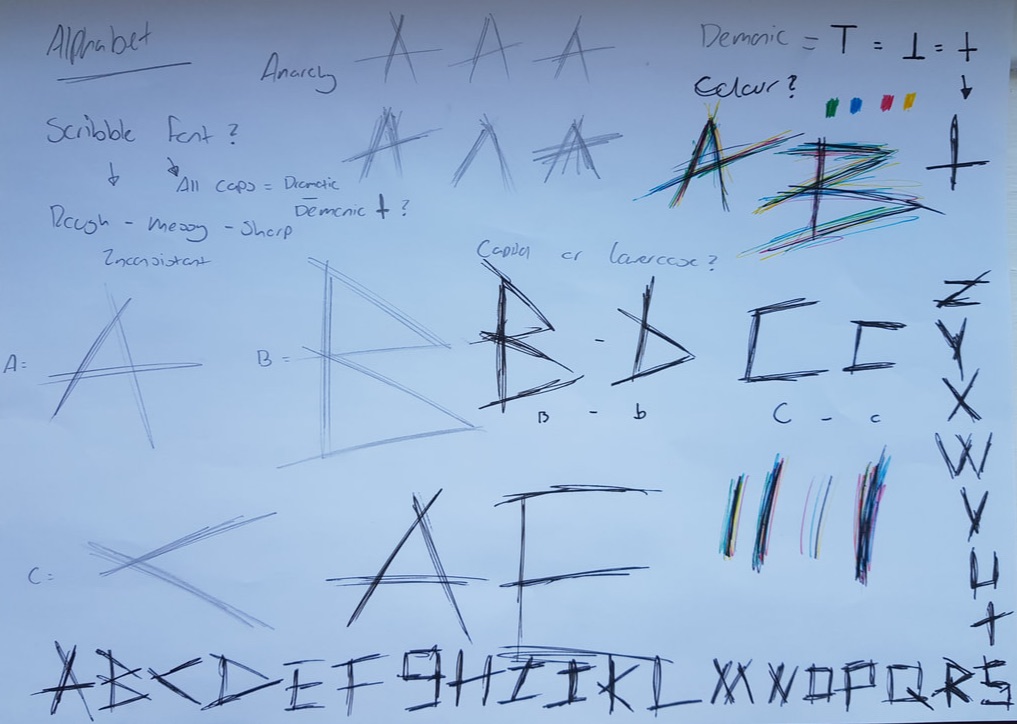 Alphabet
Anarchy
A A A
A A A
Demonic = T = ⊥ = †
Colour?
A B
Scribble Font?
All caps = Dramatic
Demonic † ?
Rough - messy - sharp
Inconsistant
Capital or lowercase?
A = A
B = B
B - b C c
B - b C - c
C = <
A F
Z
Y
X
W
V
U
†
A B C D E F G H I J K L M N O P Q R S